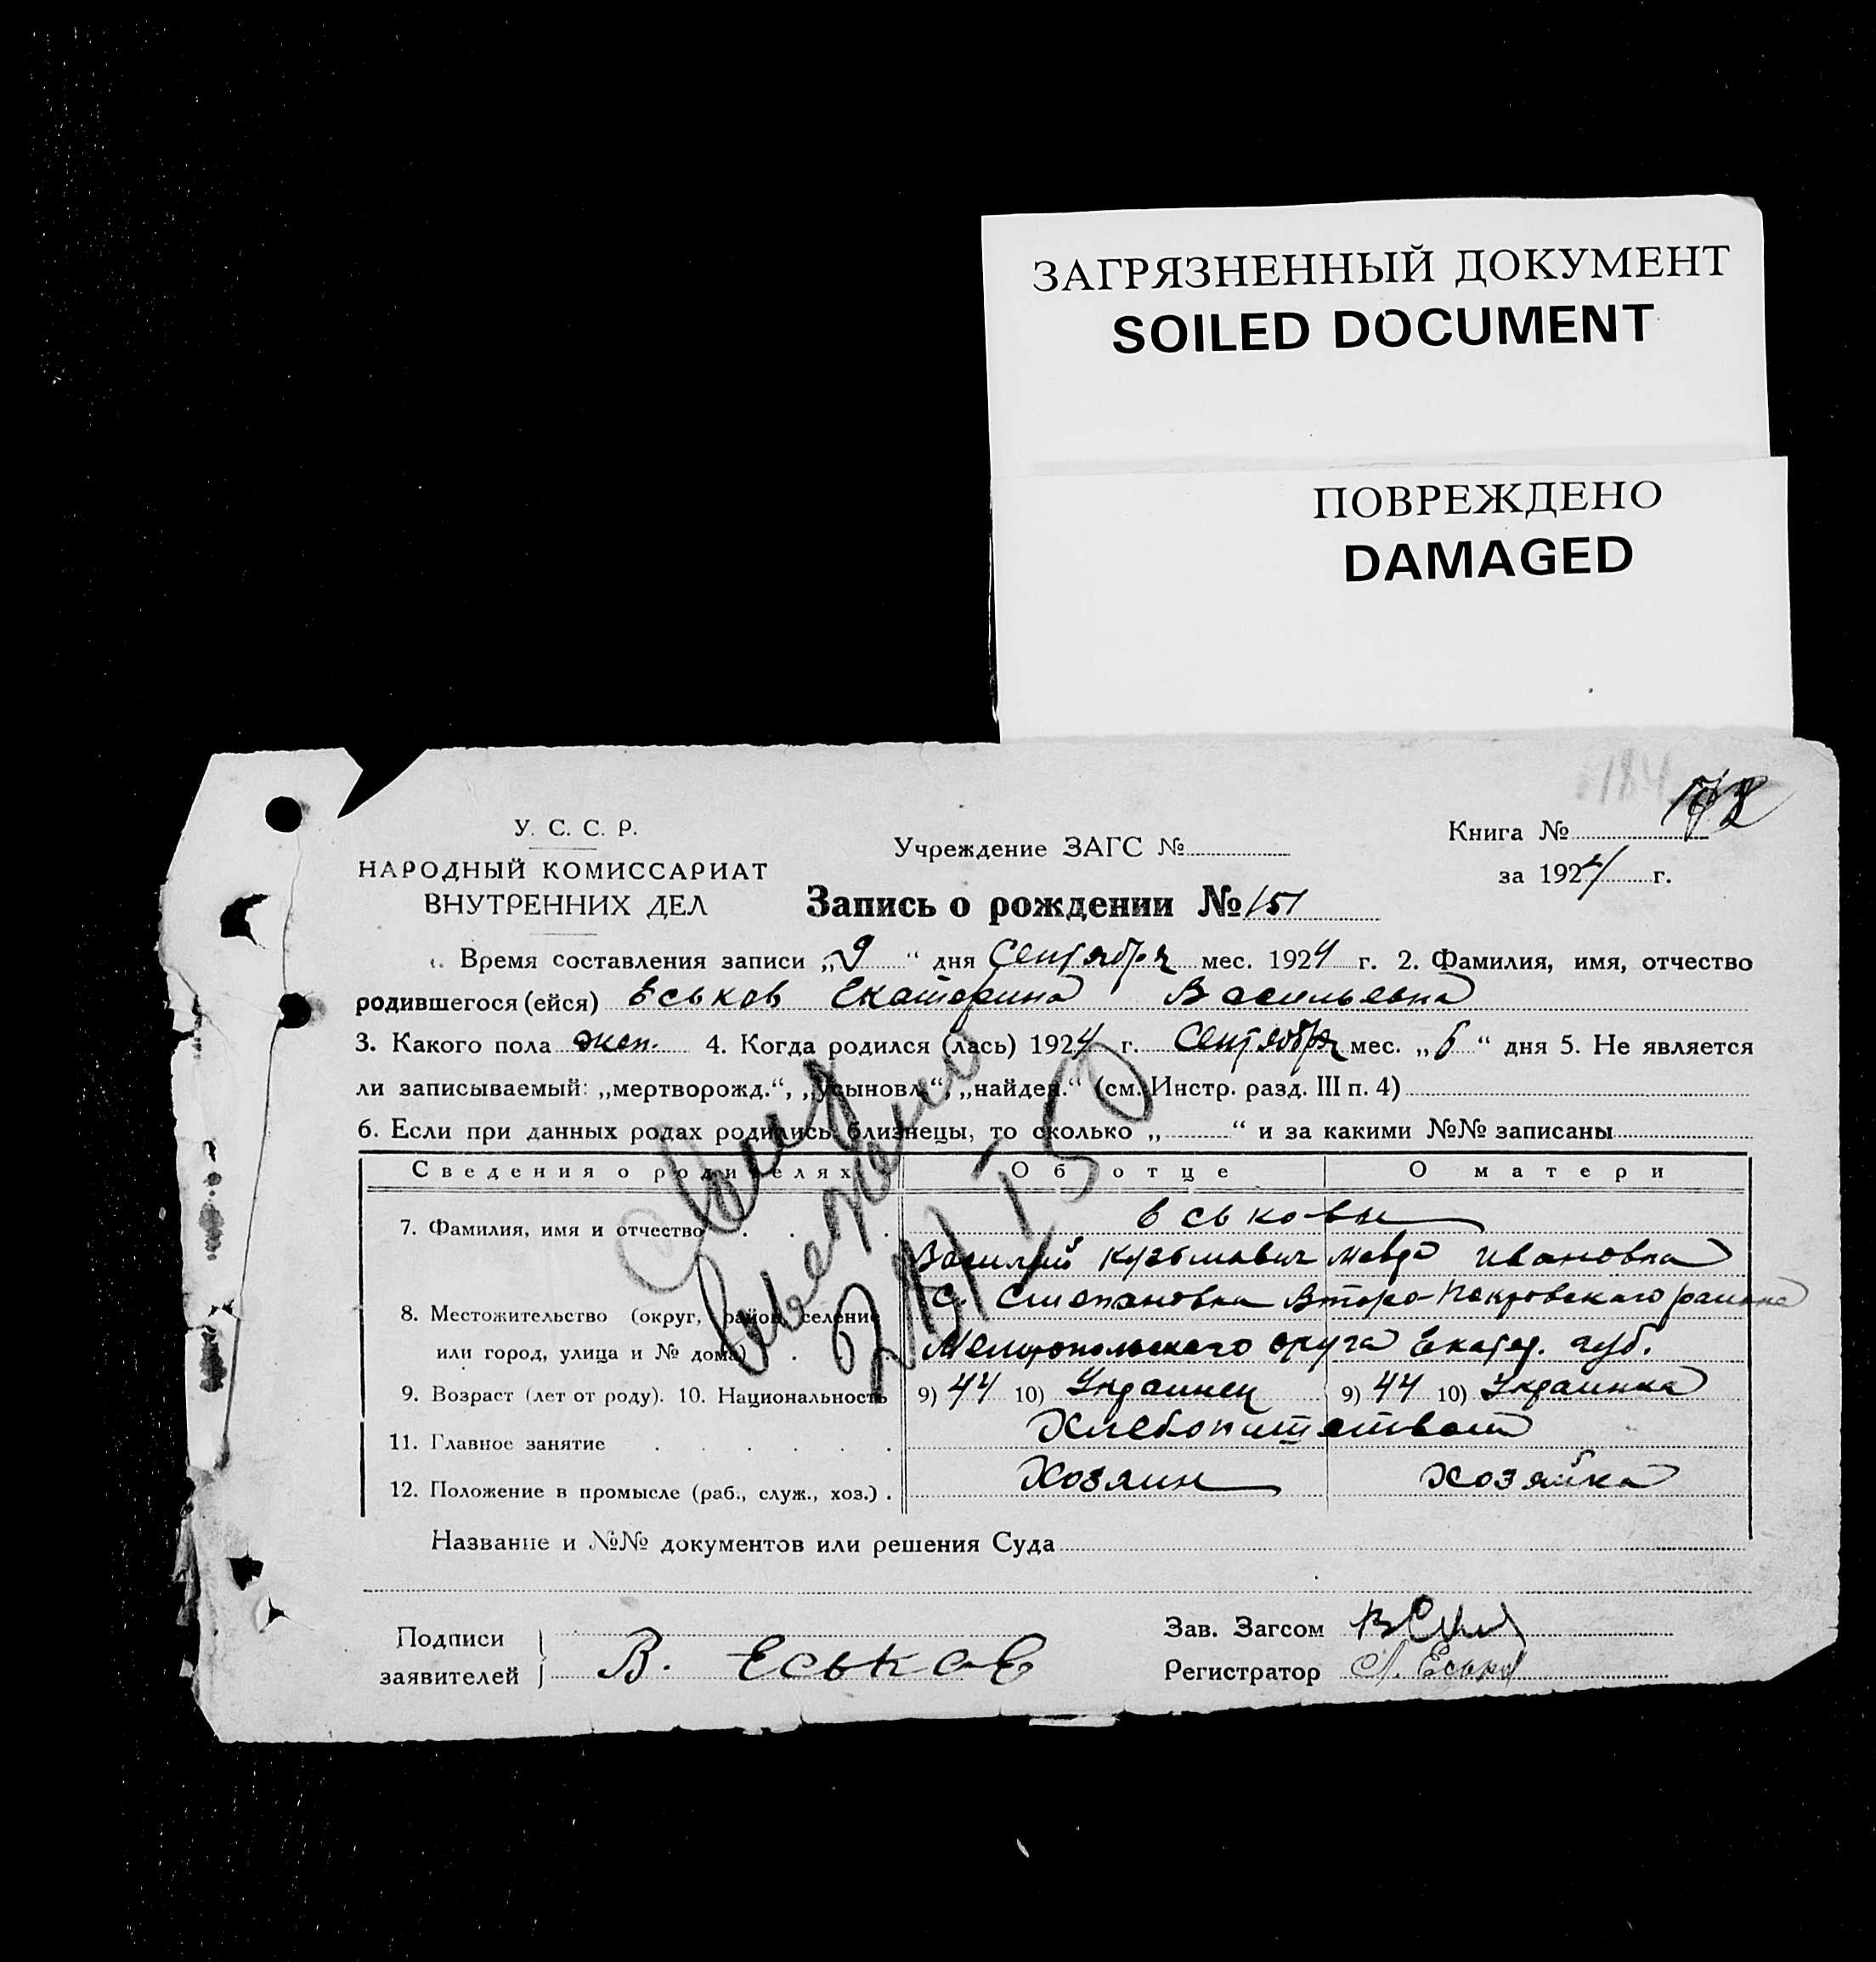 ЗАГРЯЗНЕННЫЙ ДОКУМЕНТ
SOILED DOCUMENT
ПОВРЕЖДЕНО
DAMAGED
184
У. С. С. Р.
НАРОДНЫЙ КОМИССАРИАТ
ВНУТРЕННИХ ДЕЛ
Учреждение ЗАГС №
Книга №
за 1924 г.
Запись о рождении № 151
1. Время составления записи „9“ дня Сентября мес. 1924 г. 2. Фамилия, имя, отчество
родившегося (ейся) Еськов Екатерина Васильевна
3. Какого пола жен. 4. Когда родился (лась) 1924 г. Сентября мес. „6“ дня 5. Не является
ли записываемый: „мертворожд.“, „усыновл.“, „найден.“ (см. Инстр. разд. III п. 4)
6. Если при данных родах родились близнецы, то сколько „ “ и за какими №№ записаны
Сведения о родителях Об отце О матери
7. Фамилия, имя и отчество Еськовы
Василий Кузьмович Мавра Ивановна
8. Местожительство (округ, район, селение С. Степановка Второ-Покровского района
или город, улица и № дома) Мелитопольского округа Екатер. губ.
9. Возраст (лет от роду). 10. Национальность 9) 44 10) Украинец 9) 44 10) Украинка
11. Главное занятие Хлебопашеством
12. Положение в промысле (раб., служ., хоз.) Хозяин Хозяйка
Название и №№ документов или решения Суда
Подписи
заявителей В. Еськов
Зав. Загсом
Регистратор